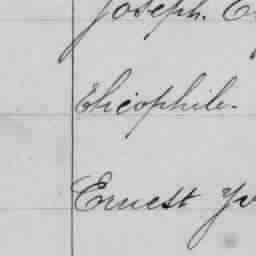 Joseph.
Théophile.
Ernest